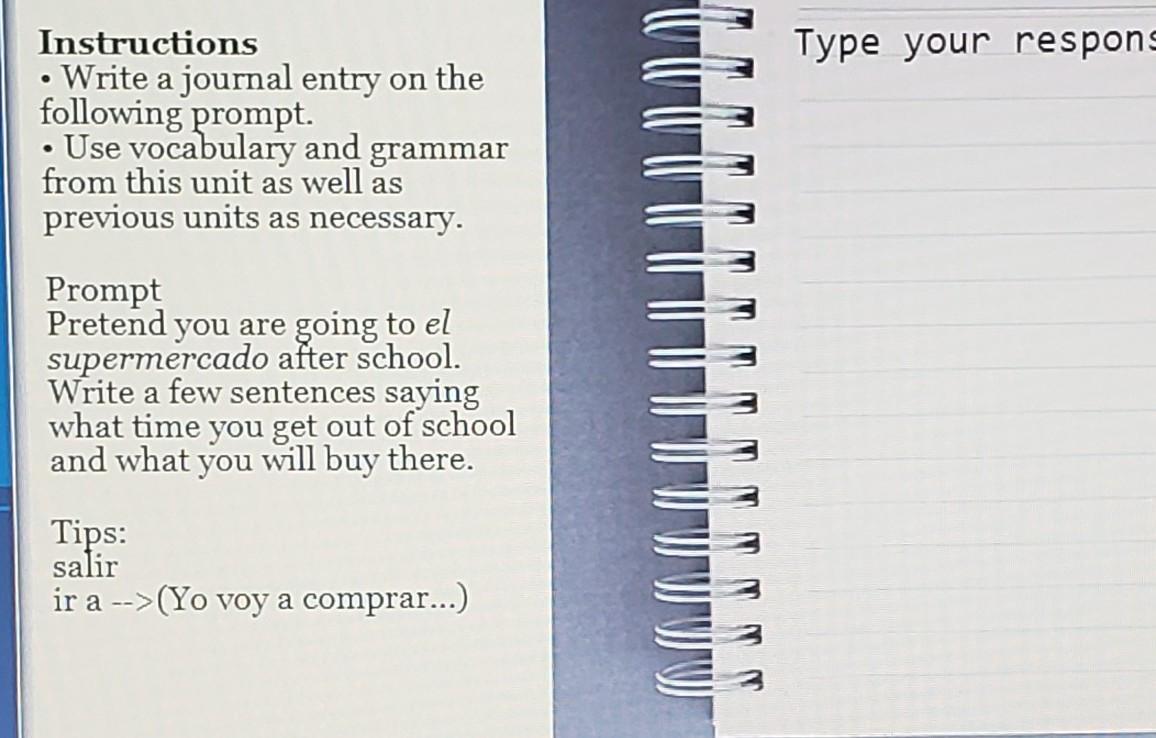 Instructions
• Write a journal entry on the
following prompt.
• Use vocabulary and grammar
from this unit as well as
previous units as necessary.
Prompt
Pretend you are going to el
supermercado after school.
Write a few sentences saying
what time you get out of school
and what you will buy there.
Tips:
salir
ir a -->(Yo voy a comprar...)
Type your respons